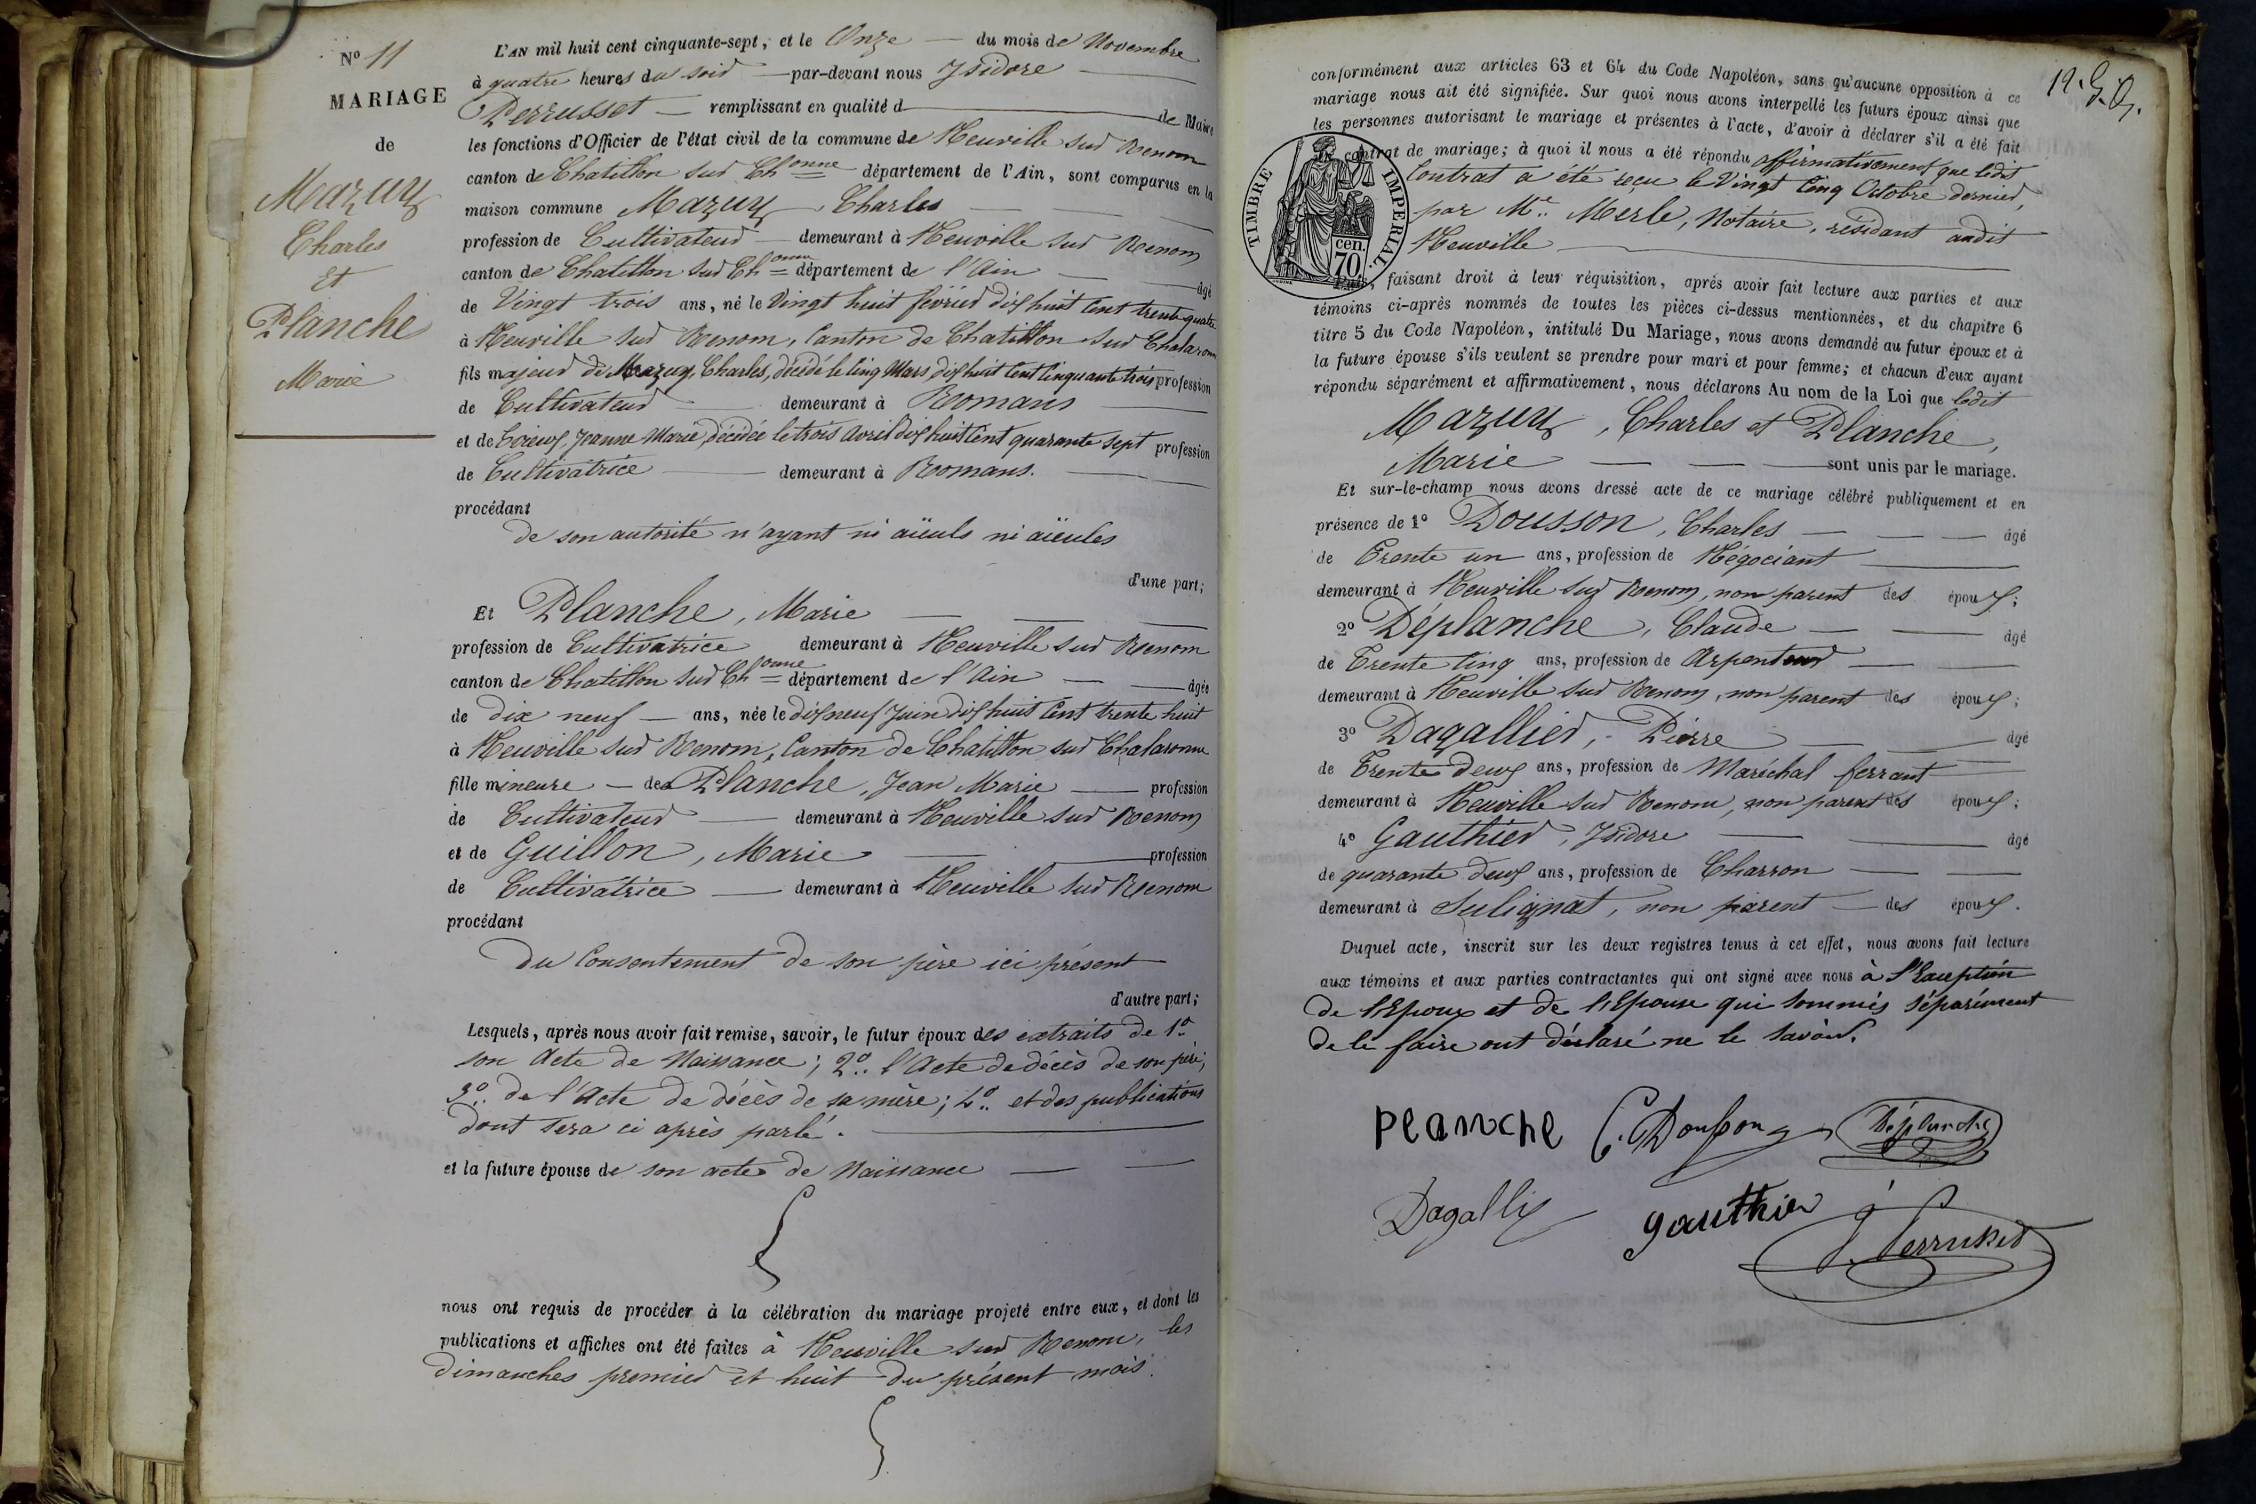 N° 11
MARIAGE
de
Mazuy
Charles
Et
Planche
Marie
L'AN mil huit cent cinquante-sept, et le Onze du mois de Novembre
à quatre heures du soir par-devant nous Isidore
Perrusset remplissant en qualité d de Maire
les fonctions d'Officier de l'état civil de la commune de Neuville sur Renom
canton de Chatillon sur Chonne département de l'Ain, sont comparus en la
maison commune Mazuy, Charles
profession de Cultivateur demeurant à Neuville sur Renom
canton de Chatillon sur Chonne département de l'Ain âgé
de Vingt trois ans, né le Vingt huit février dix huit Cent trente quatre
à Neuville sur Renom, Canton de Chatillon sur Chalaronne
fils majeur de Mazuy, Charles, décédé le Cinq Mars Dix huit Cent Cinquante trois profession
de Cultivateur demeurant à Romans
et de Jeanne Marie, décédée le trois avril dix huit Cent quarante sept profession
de Cultivatrice demeurant à Romans.
procédant
de son autorité n'ayant ni aïeuls ni aïeules
d'une part;
Et Planche, Marie
profession de Cultivatrice demeurant à Neuville sur Renom
canton de Chatillon sur Chonne département de l'Ain âgée
de dix neuf ans, née le dix neuf Juin dix huit Cent trente huit
à Neuville sur Renom, Canton de Chatillon sur Chalaronne
fille mineure de Planche, Jean Marie profession
de Cultivateur demeurant à Neuville sur Renom
et de Guillon, Marie profession
de Cultivatrice demeurant à Neuville sur Renom
procédant
du Consentement de son père ici présent
d'autre part;
Lesquels, après nous avoir fait remise, savoir, le futur époux des extraits de 1°
son acte de Naissance; 2° l'acte de décès de son père;
3° de l'acte de décès de sa mère; 4° et des publications
dont sera ci après parlé.
et la future épouse de son acte de Naissance
nous ont requis de procéder à la célébration du mariage projeté entre eux, et dont les
publications et affiches ont été faites à Neuville sur Renom, les
dimanches premier et huit du présent mois.
12.
conformément aux articles 63 et 64 du Code Napoléon, sans qu'aucune opposition à ce
mariage nous ait été signifiée. Sur quoi nous avons interpellé les futurs époux ainsi que
les personnes autorisant le mariage et présentes à l'acte, d'avoir à déclarer s'il a été fait
un contrat de mariage; à quoi il nous a été répondu affirmativement que ledit
Contrat a été reçu le Vingt Cinq Octobre dernier,
par Me. Merle, Notaire, résidant audit
Neuville
TIMBRE IMPERIAL.
70 cen.
Puis, faisant droit à leur réquisition, après avoir fait lecture aux parties et aux
témoins ci-après nommés de toutes les pièces ci-dessus mentionnées, et du chapitre 6
titre 5 du Code Napoléon, intitulé Du Mariage, nous avons demandé au futur époux et à
la future épouse s'ils veulent se prendre pour mari et pour femme; et chacun d'eux ayant
répondu séparément et affirmativement, nous déclarons Au nom de la Loi que ledit
Mazuy, Charles et Planche,
Marie sont unis par le mariage.
Et sur-le-champ nous avons dressé acte de ce mariage célébré publiquement et en
présence de 1° Dousson, Charles âgé
de Trente un ans, profession de Négociant
demeurant à Neuville sur Renom, non parent des époux;
2° Déplanche, Claude âgé
de Trente Cinq ans, profession de Arpenteur
demeurant à Neuville sur Renom, non parent des époux;
3° Dagallier, Pierre âgé
de Trente deux ans, profession de Maréchal ferrant
demeurant à Neuville sur Renom, non parent des époux;
4° Gauthier, Isidore âgé
de quarante deux ans, profession de Charron
demeurant à Sulignat, non parent des époux.
Duquel acte, inscrit sur les deux registres tenus à cet effet, nous avons fait lecture
aux témoins et aux parties contractantes qui ont signé avec nous à l'Exception
de l'Epoux et de l'Epouse qui sommés séparément
de le faire ont déclaré ne le savoir.
Planche C. Dousson Déplanche
Dagallier gauthier J. Perrusset